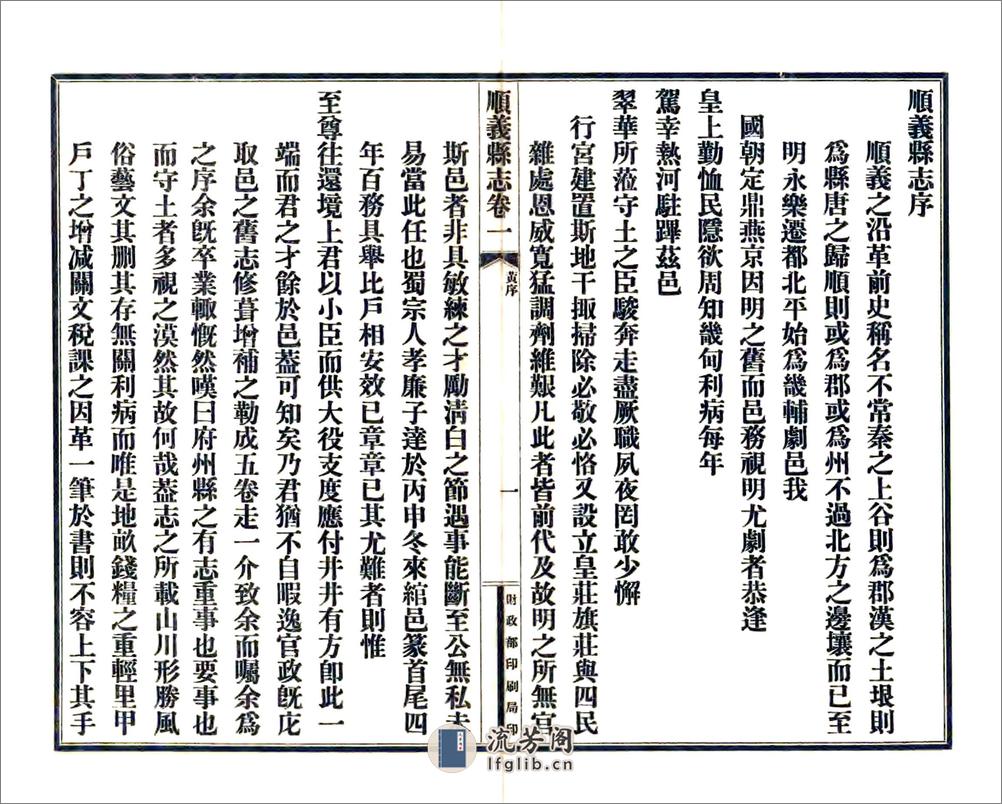 順義縣志序
順義之沿革前史稱名不常秦之上谷則爲郡漢之土垠則
爲縣唐之歸順則或爲郡或爲州不過北方之邊壤而已至
明永樂遷都北平始爲畿輔劇邑我
國朝定鼎燕京因明之舊而邑務視明尤劇者恭逢
皇上勤恤民隱欲周知畿甸利病每年
駕幸熱河駐蹕茲邑
翠華所蒞守土之臣駿奔走盡厥職夙夜罔敢少懈
行宮建置斯地干掫掃除必敬必恪又設立皇莊旗莊與四民
雜處恩威寬猛調劑維艱凡此者皆前代及故明之所無官
順義縣志卷一
黃序
一
財政部印刷局印
斯邑者非具敏練之才勵淸白之節遇事能斷至公無私未
易當此任也蜀宗人孝廉子達於丙申冬來綰邑篆首尾四
年百務具舉比戶相安效已章章已其尤難者則惟
至尊往還境上君以小臣而供大役支度應付井井有方卽此一
端而君之才餘於邑葢可知矣乃君猶不自暇逸官政旣庀
取邑之舊志修葺增補之勒成五卷走一介致余而囑余爲
之序余旣卒業輙慨然嘆曰府州縣之有志重事也要事也
而守土者多視之漠然其故何哉葢志之所載山川形勝風
俗藝文其删其存無關利病而唯是地畝錢糧之重輕里甲
戶丁之增减關文稅課之因革一筆於書則不容上下其手
流芳阁
lfglib.cn